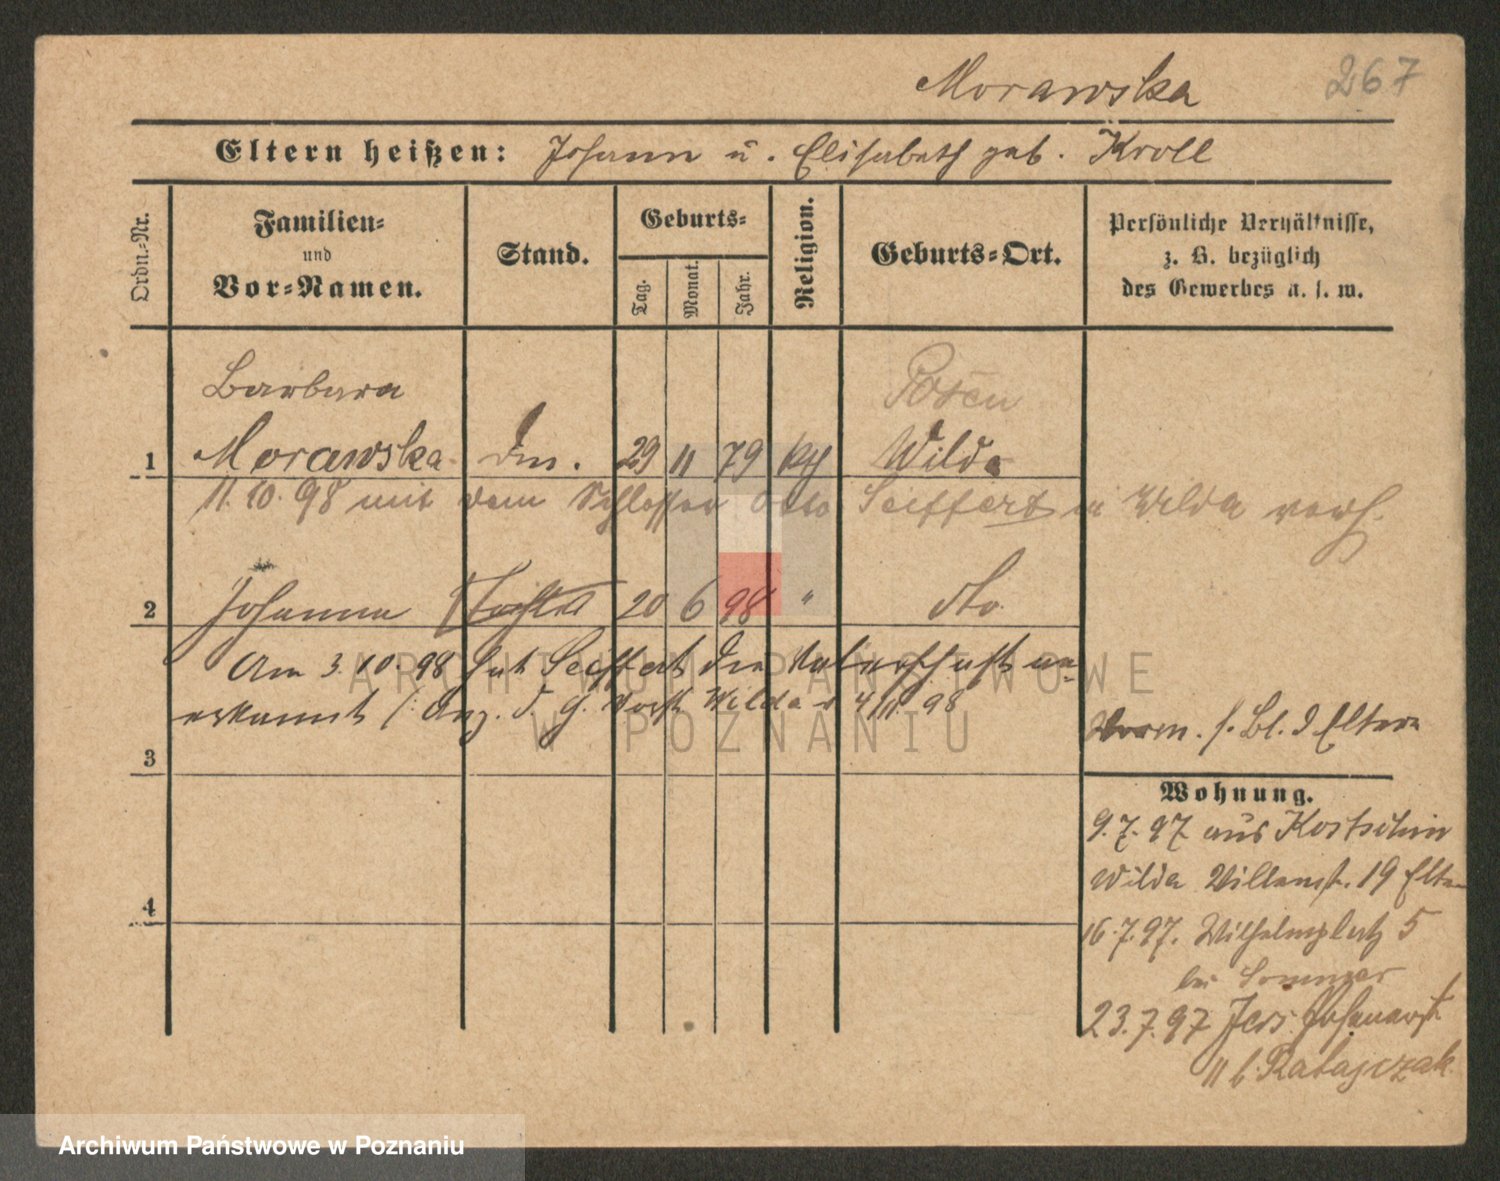 Morawska 267
Eltern heißen: Johann u. Elisabeth geb. Kroll
Ordn.-Nr.
Familien-
und
Vor-Namen.
Stand.
Geburts-
Tag.
Monat.
Jahr.
Religion.
Geburts-Ort.
Persönliche Verhältnisse,
z. B. bezüglich
des Gewerbes u. s. w.
Barbara Posen
1 Morawska Dm. 29 11 79 kth Wilda
11.10.98 mit dem Schlosser Otto Seiffert in Wilda verh.
2 Johanna Tochter 20 6 98 " dto.
Am 3.10.98 hat Seiffert die Vaterschaft an-
erkannt /: Anz. d. G. Vorst. Wilda v. 4/11. 98
3
4
Verm. s. Bl. d Eltern
Wohnung.
9.7.97 aus Kostschin
Wilda Villenst. 19 Eltern
16.7.97. Wilhelmplatz 5
bei Sommer
23.7.97 Jers. Johannest.
11 b. Ratajczak
ARCHIWUM PAŃSTWOWE
W POZNANIU
Archiwum Państwowe w Poznaniu